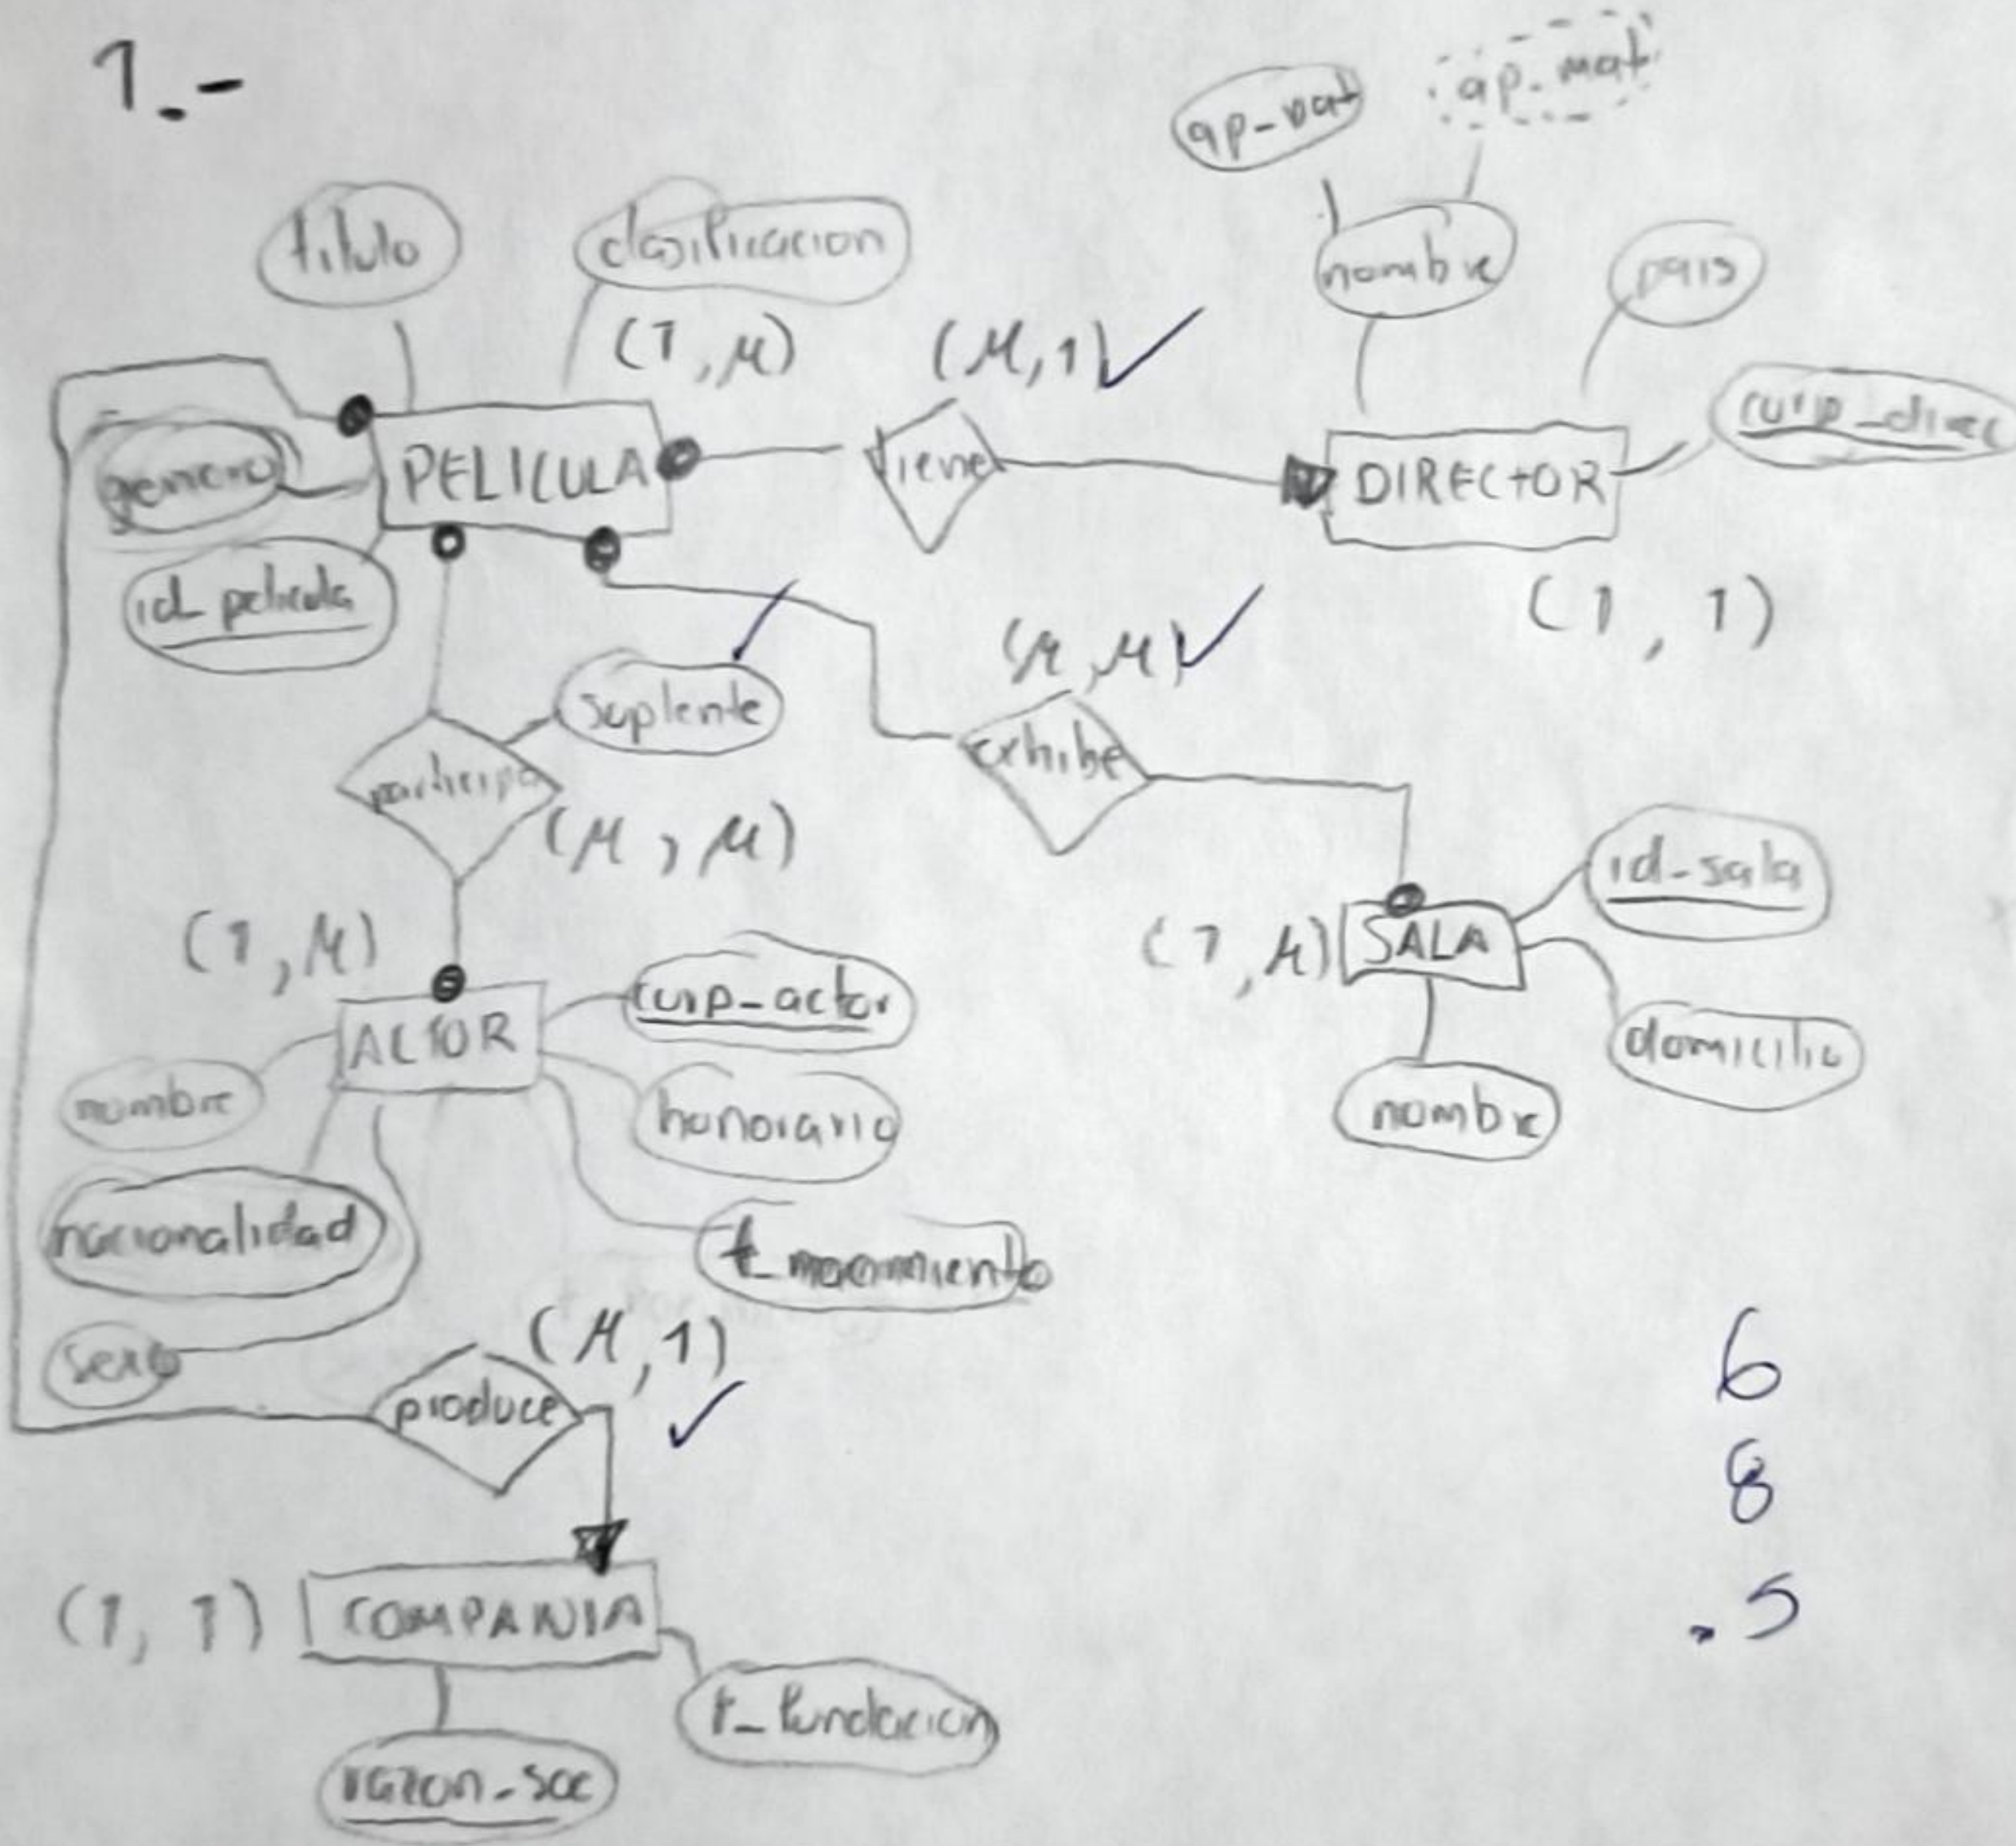 1.-
ap-pat
ap-mat
titulo
clasificacion
nombre
pais
(1,M)
(M,1)
curp_direc
genero
PELICULA
tiene
DIRECTOR
id_pelicula
(1, 1)
(M,M)
suplente
exhibe
participa
(M, M)
id-sala
(1,M)
(1,M)
SALA
curp-actor
ACTOR
domicilio
nombre
honorario
nombre
nacionalidad
(M,1)
sexo
produce
6
8
.5
(1, 1)
COMPANIA
f_fundacion
razon-soc